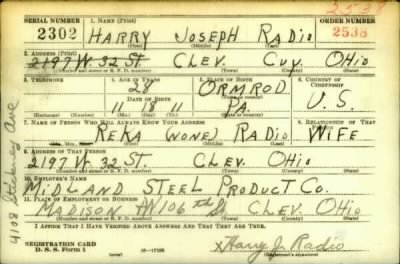 2538
SERIAL NUMBER 1. NAME (Print) ORDER NUMBER
2302 HARRY JOSEPH RADIO 2538
(First) (Middle) (Last)
2. ADDRESS (Print)
2197 W. 32 ST. CLEV. CUY. OHIO
(Number and street or R. F. D. number) (Town) (County) (State)
3. TELEPHONE 4. AGE IN YEARS 5. PLACE OF BIRTH 6. COUNTRY OF CITIZENSHIP
28 ORMROD
DATE OF BIRTH (Town or county)
11 18 11 PA. U.S.
(Mo.) (Day) (Yr.) (State or country)
7. NAME OF PERSON WHO WILL ALWAYS KNOW YOUR ADDRESS 8. RELATIONSHIP OF THAT PERSON
REKA (NONE) RADIO WIFE
(Mr., Mrs., Miss) (First) (Middle) (Last)
9. ADDRESS OF THAT PERSON
2197 W. 32 ST. CLEV. OHIO
(Number and street or R. F. D. number) (Town) (County) (State)
10. EMPLOYER'S NAME
MIDLAND STEEL PRODUCT CO.
11. PLACE OF EMPLOYMENT OR BUSINESS
MADISON 106th St CLEV. OHIO
(Number and street or R. F. D. number) (Town) (County) (State)
I AFFIRM THAT I HAVE VERIFIED ABOVE ANSWERS AND THAT THEY ARE TRUE.
REGISTRATION CARD
D. S. S. Form 1 16-17105 x Harry J. Radio
(Registrant's signature)
4108 Ave